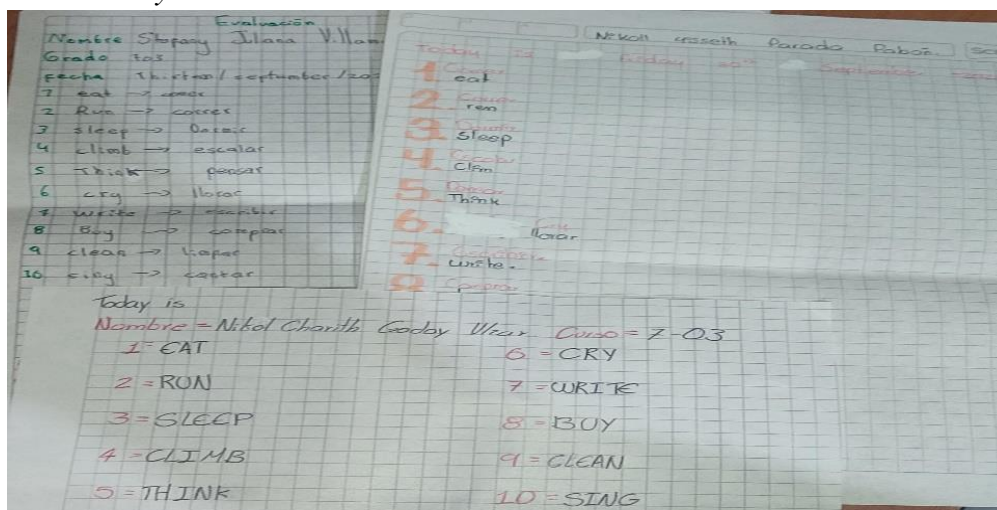 Evaluación
Nombre Stefany Iliana Villam
Grado 703
Fecha Thirteen / september / 202
1 eat → comer
2 Run → correr
3 sleep → Dormir
4 climb → escalar
5 Think → pensar
6 cry → llorar
7 write → escribir
8 Buy → comprar
9 clean → limpiar
10 sing → cantar
Nikoll Parada Pabon
Today is
1. Comer
eat
2. Correr
ren
3. Dormir
Sleep
4. Escalar
Clim
5. Pensar
Think
6.
llorar
7. Escribir
write.
8 Comprar
Today is
Nombre = Nikol Charith Godoy Curso = 7-03
1 = EAT
6 = CRY
2 = RUN
7 = WRITE
3 = SLEEP
8 = BUY
4 = CLIMB
9 = CLEAN
5 = THINK
10 = SING